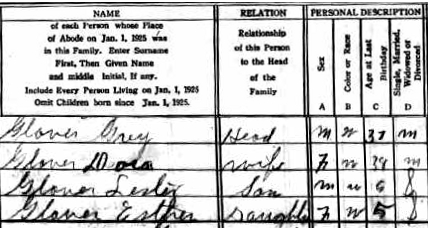 NAME
of each Person whose Place
of Abode on Jan. 1, 1925 was
in this Family. Enter Surname
First, Then Given Name
and middle Initial, If any.
Include Every Person Living on Jan, 1, 1925
Omit Children born since Jan. 1, 1925.
RELATION
Relationship
of this Person
to the Head
of the
Family
PERSONAL DESCRIPTION
Sex
A
Color or Race
B
Age at Last
Birthday
C
Single, Married,
Widowed or
Divorced
D
Glover Grey Head M W 37 M
Glover Dora Wife F W M
Glover Lester Son M W S
Glover Esther Daughter F W 5 S